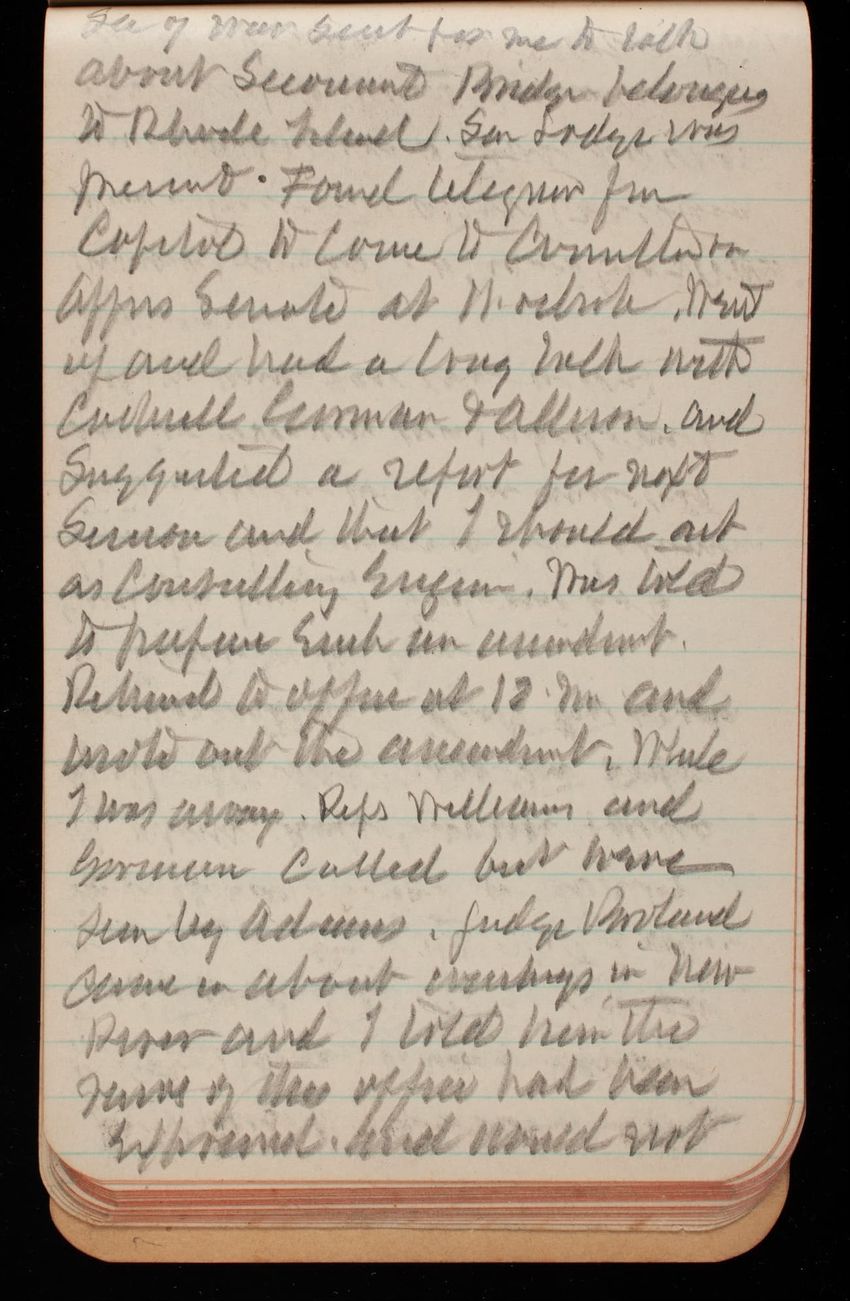 Sec of War sent for me to talk
about Seconnet Bridge belonging
to Rhode Island. Sen Lodge was
present. Found telegram from
Capitol to come to Committee on
Affrs Senate at 11 oclock. Went
up and had a long talk with
Cockrell Gorman & Allison. and
Suggested a report for next
Session and that I should act
as Consulting Engineer. Was told
to prepare such an amendment.
Returned to office at 12 m and
wrote out the amendment. While
I was away. Reps Williams and
Gorman called but were
seen by Adams. Judge
came in about in New
River and I told him the
views of this office had been
expressed. and would not